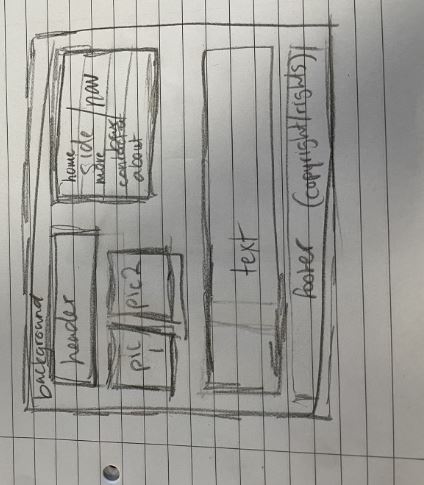 background
header
home
side /nav
more
contact
about
pic 1
pic2
text
footer (copyright/rights)